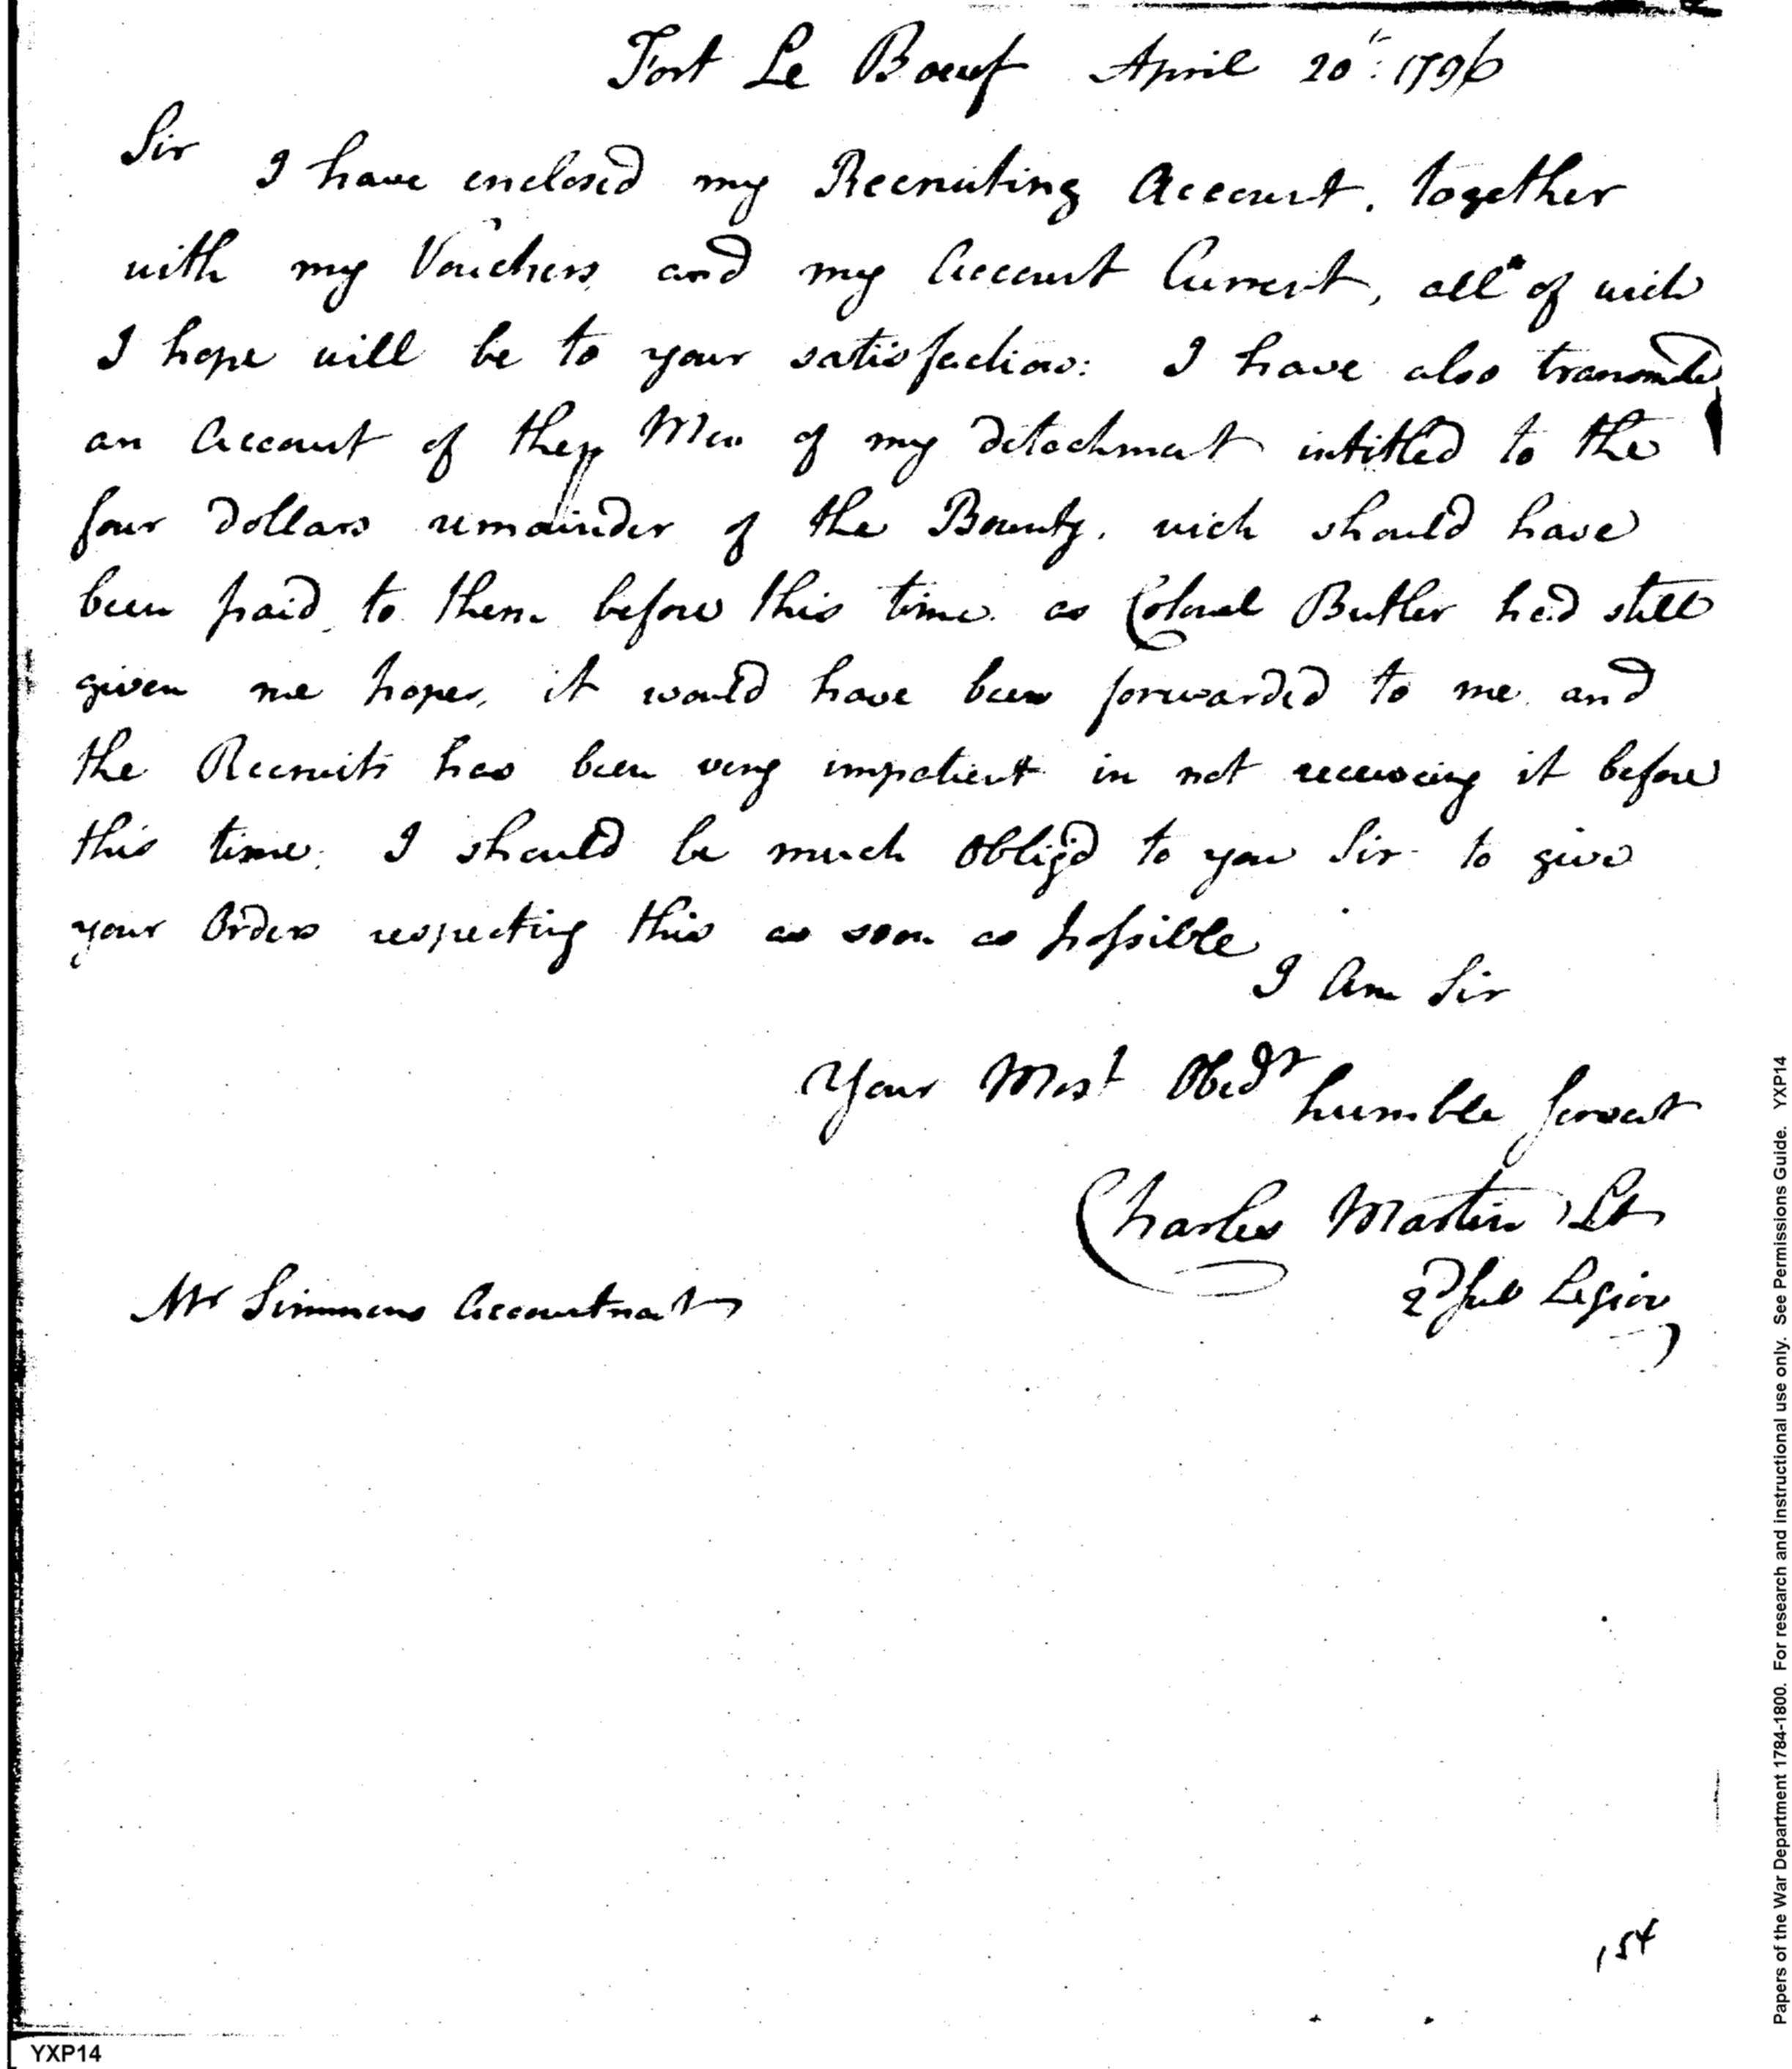 Fort Le Boeuf April 20th: 1796
Sir
I have enclosed my Recruiting Account. together
with my Vouchers and my Account Current, all of wich
I hope will be to your satisfaction: I have also transmited
an Account of the Men of my detachment intitled to the
four dollars remainder of the Bounty. wich should have
been paid to them before this time. as Colonel Butler had still
given me hopes, it would have been forwarded to me and
the Recruits has been very impatient in not receiving it before
this time. I should be much Oblig'd to you Sir to give
your Orders respecting this as soon as possible
I Am Sir
Your Most Obedt humble servant
Charles Martin Lt
2d sub Legion
Mr Simmons Accountnat
154
YXP14
Papers of the War Department 1784-1800. For research and instructional use only. See Permissions Guide. YXP14